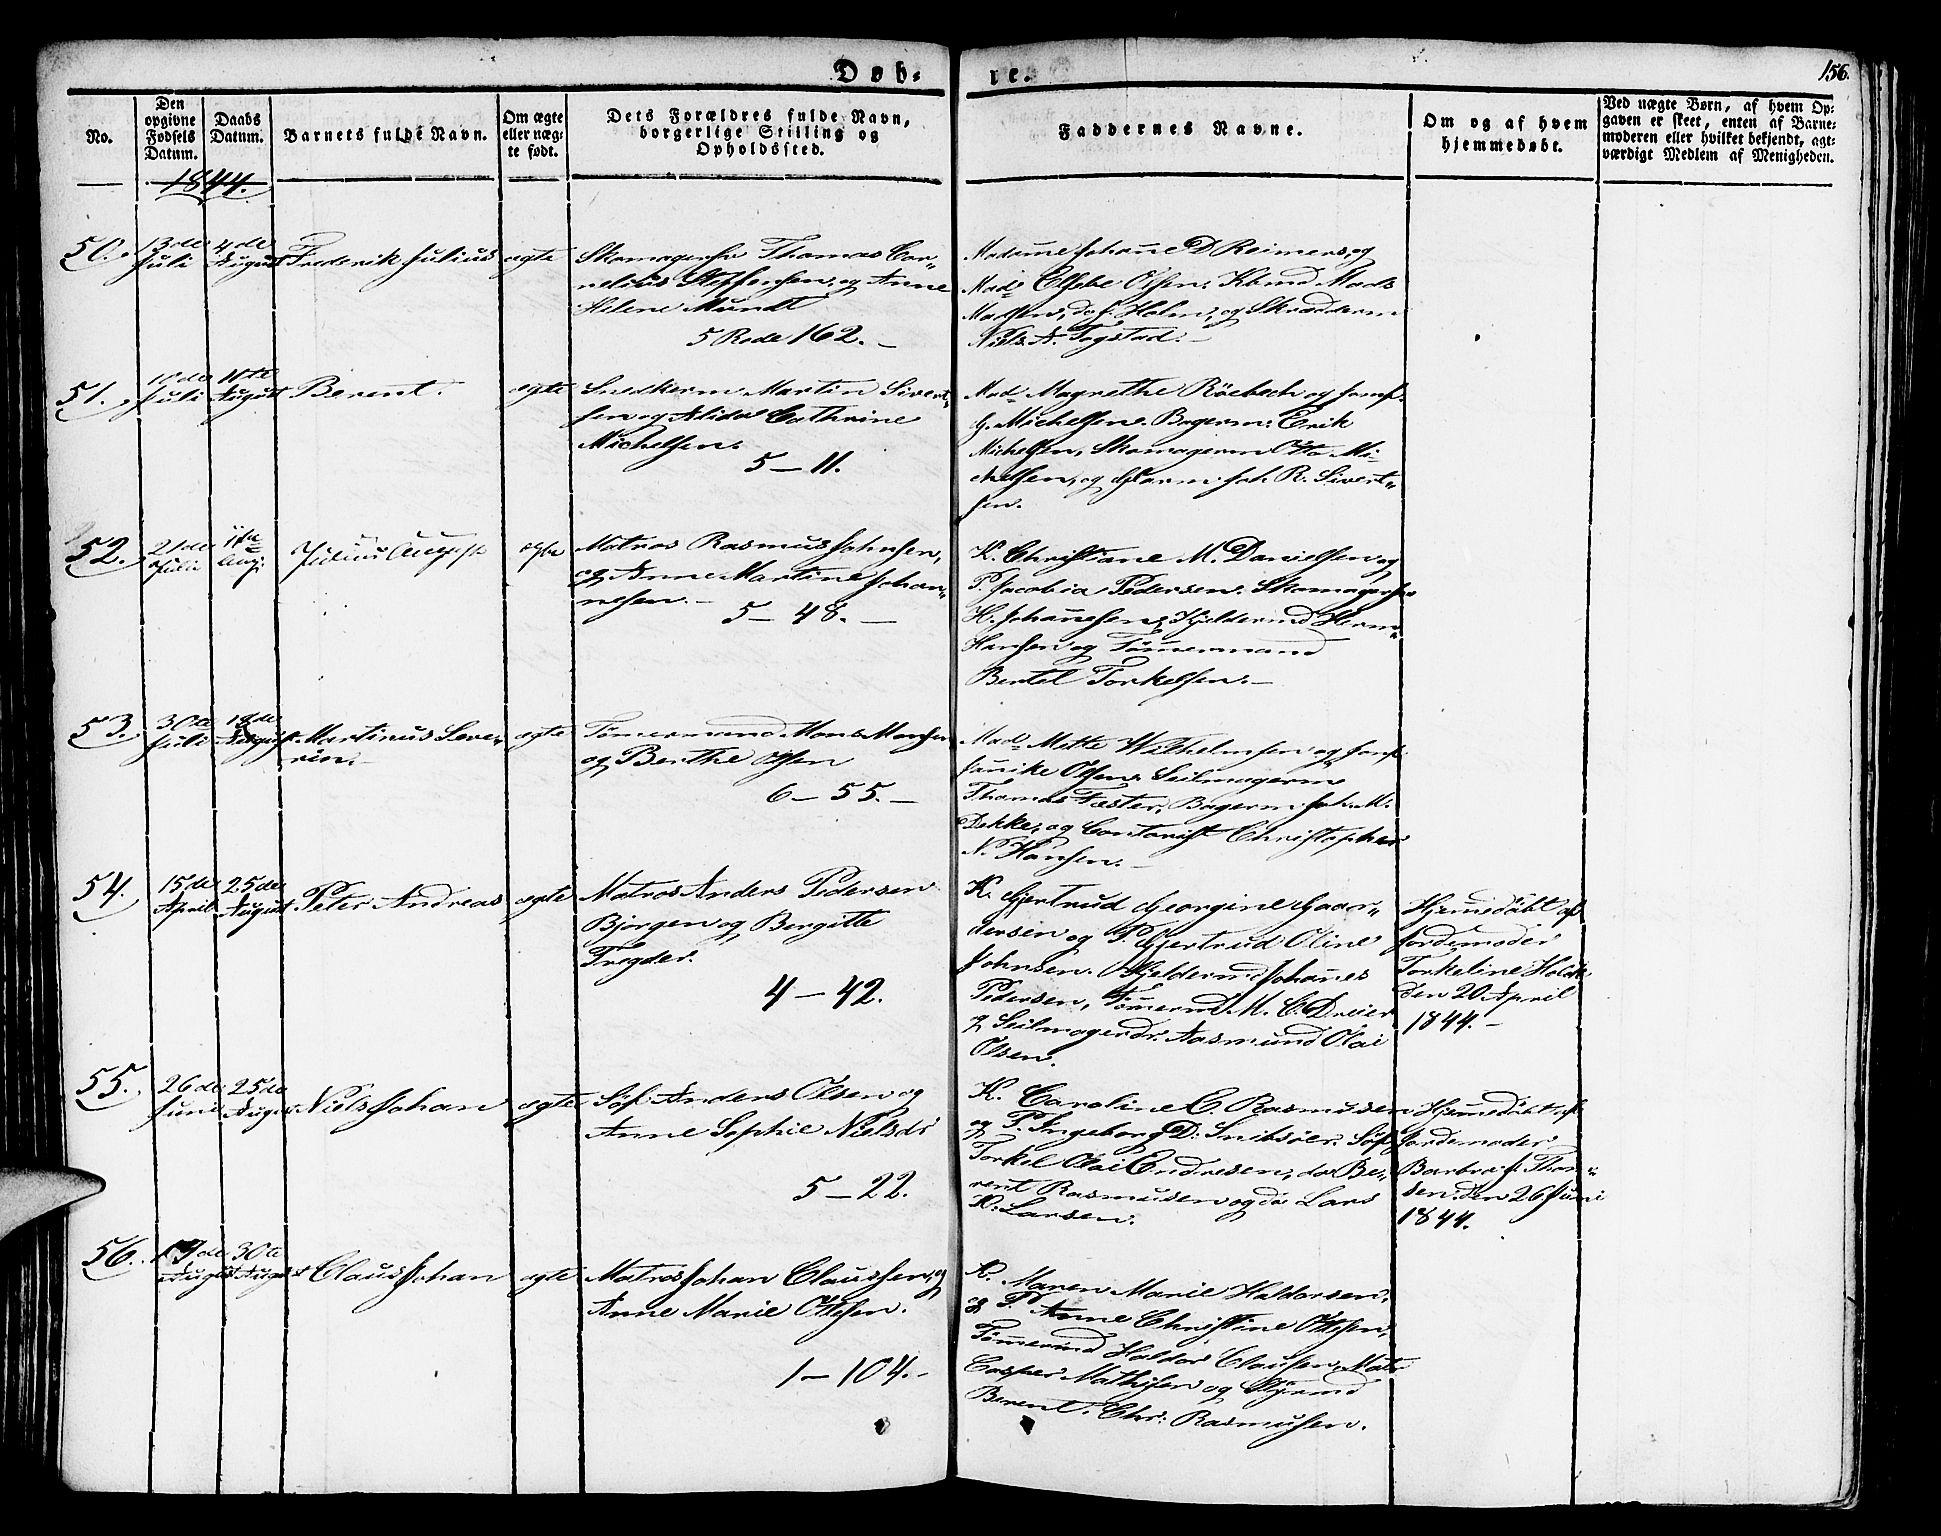 Døb-
te.
156.
No.
Den opgivne Fødsels Datum.
Daabs Datum.
Barnets fulde Navn.
Om ægte eller næg- te født.
Dets Forældres fulde Navn, borgerlige Stilling og Opholdssted.
Faddernes Navne.
Om og af hvem hjemmedøbt.
Ved uægte Børn, af hvem Op- gaven er skeet, enten af Barne- moderen eller hvilket bekjendt, agt- værdigt Medlem af Menigheden.
1844.
50. 13de Juli 4de August Frederik Julius ægte
Skomagersv Thomas Cor-
nelius Steffensen, og Anne
Helene Mundt
5 Rode 162.
Madame Johanne D Reimers, og
Mad. Elsebe Olsen, Kbmd Mads
Madsen, do J. Holm, og Skrædderm
Niels A. Fogstad.
51. Juli 11te August Berent. ægte
Snedkerm Martin Sivert-
sen og Alida Cathrine
Michelsen.
5 – 11.
Mad. Magrethe Röebech og Jomf.
G. Michelsen. Bagerm: Erik
Michelsen, Skomagerm Otto Mi-
chelsen, og Joh R. Sivert-
sen.
52. 21de Juli 11te Aug. Julius August ægte
Matros Rasmus Johnsen,
og Anne Martine Johan-
nesen.
5 – 48.
K. Christiane M. Danielsen og
P. Jacobia Pedersen. Skomagersv
H. Johannesen, Kjeldermd Herm-
Hansen og Tömermand
Bertel Torkelsen.
53. 30te Juli 18de August Martinus Seve-
rin. ægte
Tömermand Mons Monsen
og Berthe Olsen
6 – 55.
Mad. Mette Wilhelmsen og Jomf.
Janike Olsen. Seilmagerm
Thomas Fæster, Bagerm Joh. M.
Dekke, og Contorist Christopher
N. Hansen.
54. 15de April 25de August Peter Andreas ægte
Matros Anders Pedersen
Bjorgen og Bergitte
Tregder.
4 – 42.
K. Gjertrud Georgine Gaar-
dersen og P. Gjertrud Oline
Johnsen. Kjeldermd Johanes
Pedersen, Tömermd M. C. Dreier
og Seilmagerdr. Aasmund Olai
Olsen.
Hjemedöbt af
Jordemoder
Torkeline Holdt
den 20 April
1844.
55. 26de Juni 25de August Niels Johan ægte
Söf. Anders Olsen og
Anne Sophie Nielsdr
5 – 22.
K. Caroline C. Rasmussen
og P. Ingeborg D. Snibsöer. Söf.
Torkel Olai Endresen, do Be-
rent Rasmusen og do Lars
K. Larsen.
Hjemedöbt af
Jordemoder
Barbra J. Thom-
sen den 26 Juni
1844.
56. August 30te August Claus Johan ægte
Matros Johan Claussen, og
Anne Marie Ottesen.
1 – 104.
K. Maren Marie Haldorsen,
og P. Anne Christine Ottesen,
Tömermd Haldor Clausen, Matr
Casper Mathisen og Styrmd
Berent Chr: Rasmussen.